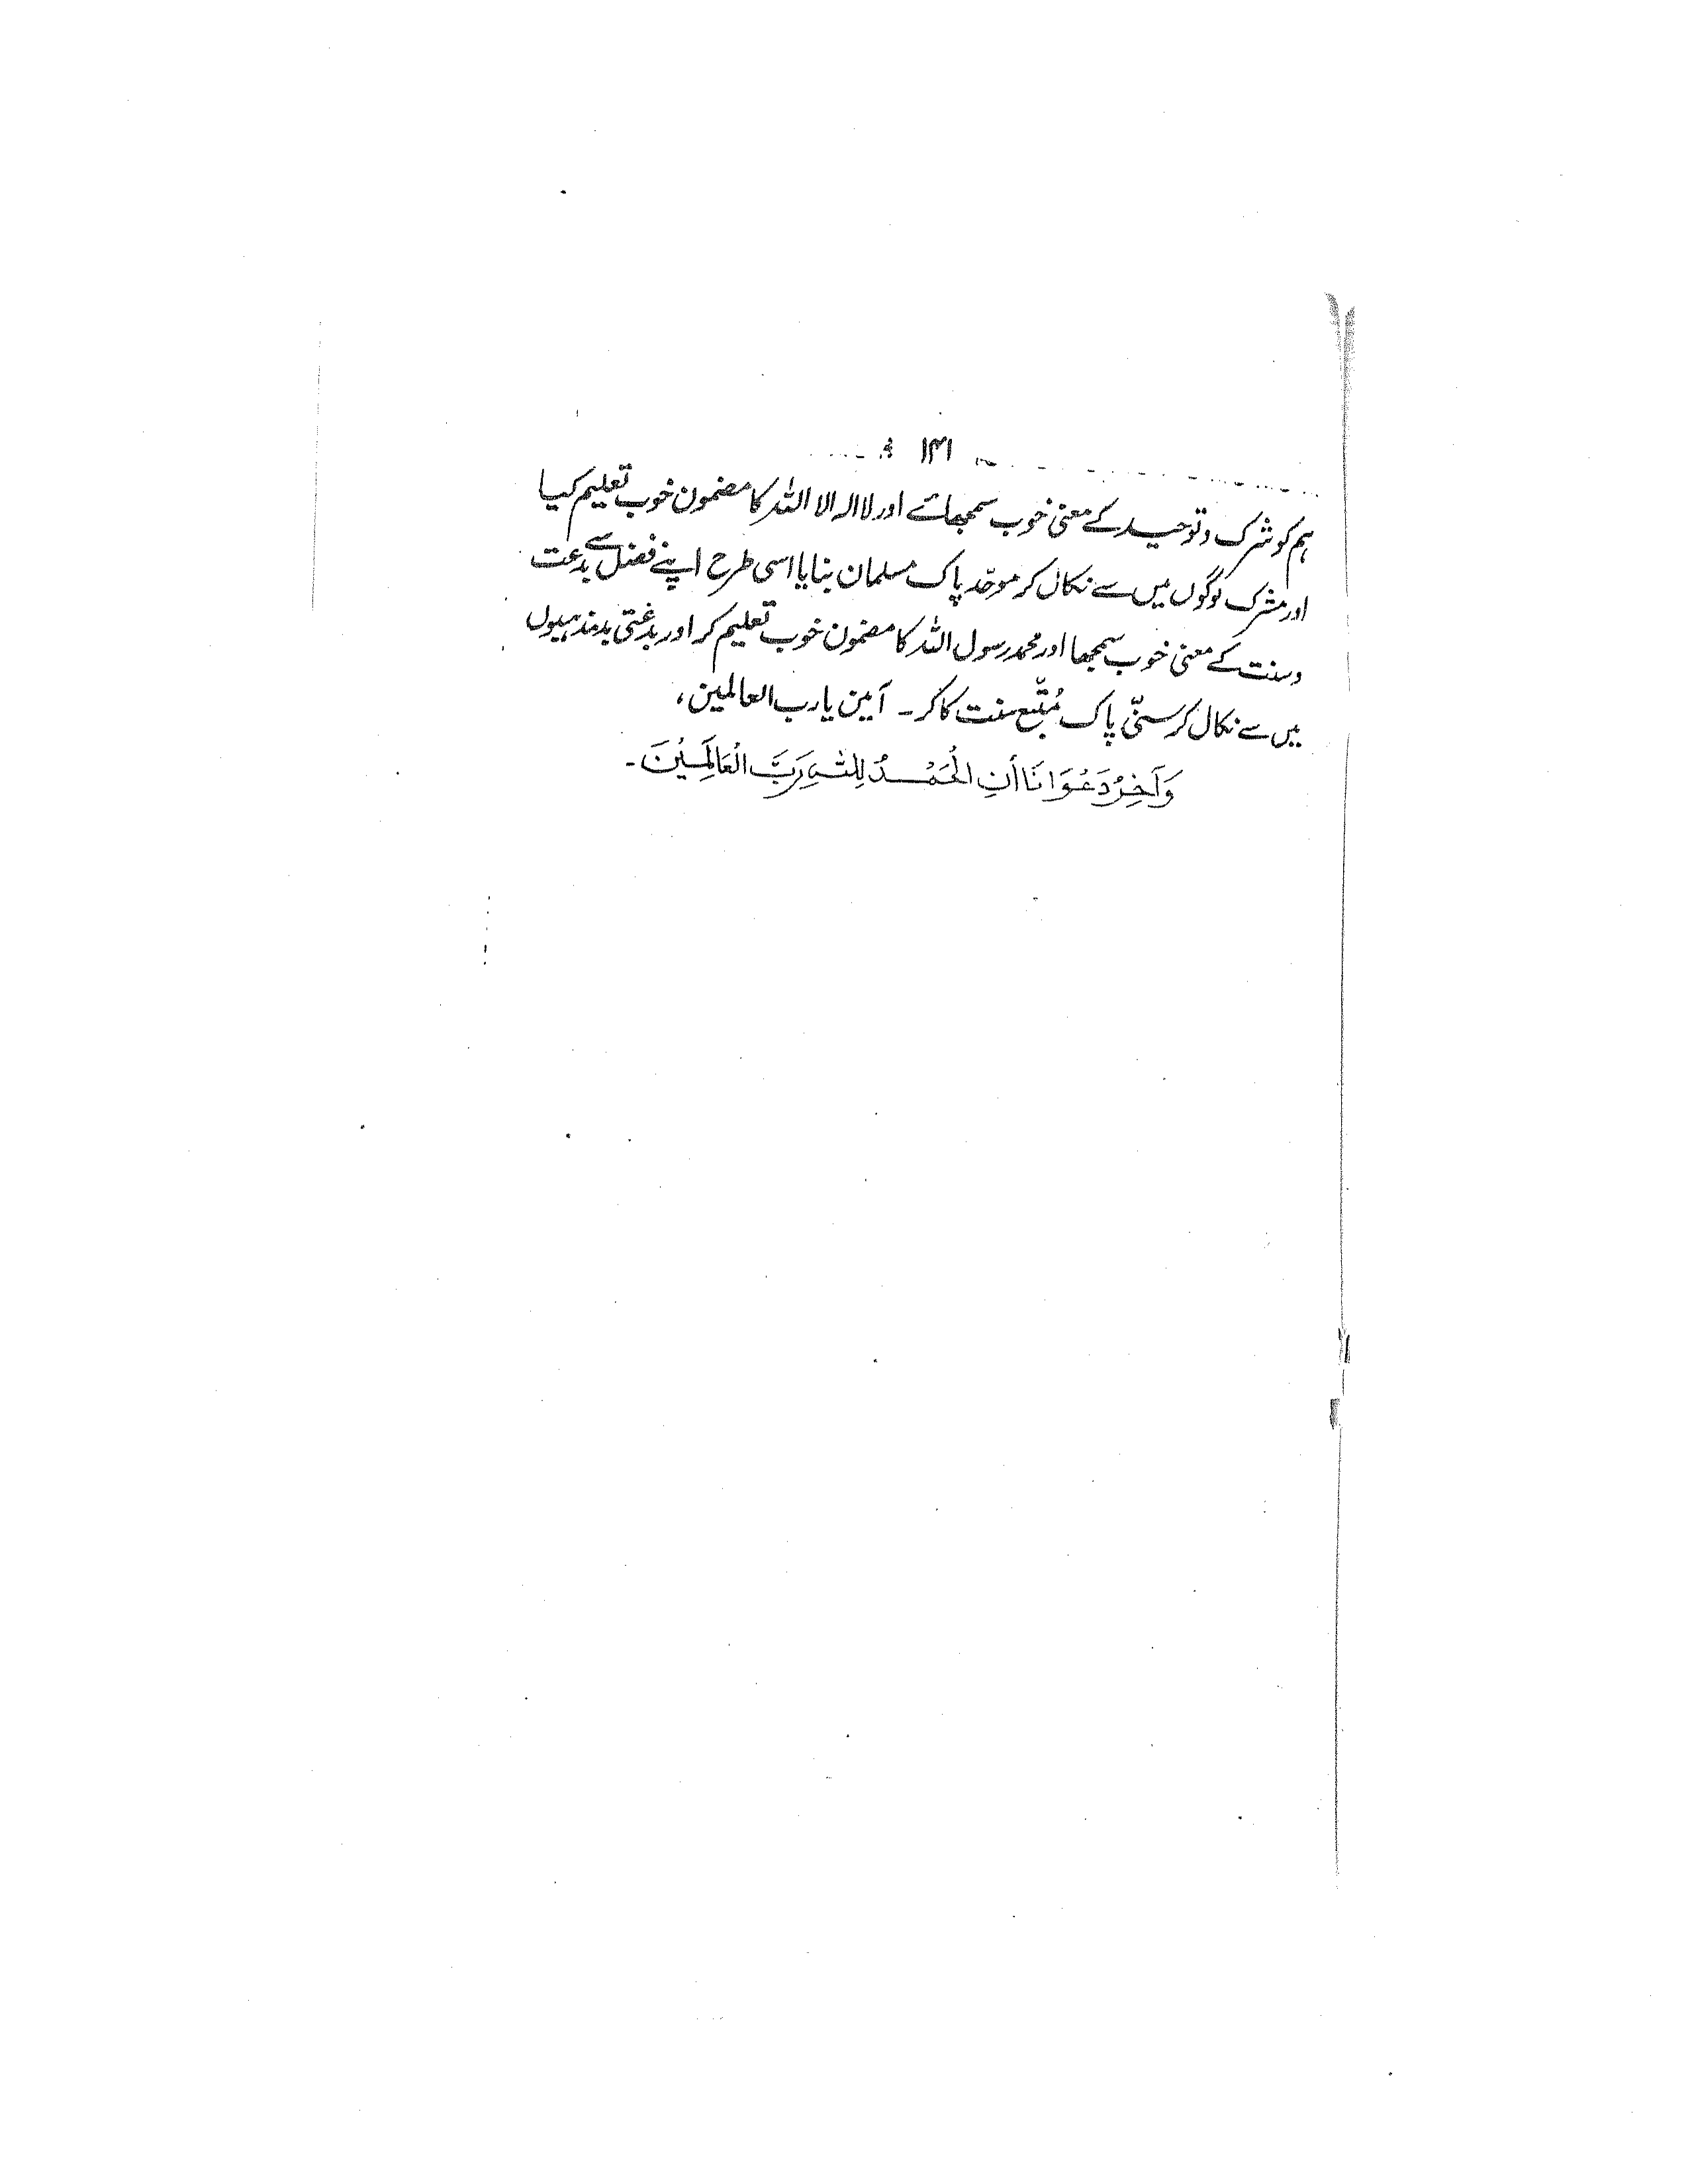 ۱۳۱
ہم کو شرک و توحید کے معنی خوب سمجھائے اور لا الہ الا اللہ کا مضمون خوب تعلیم کیا
اور مشرک لوگوں میں سے نکال کر موحّد پاک مسلمان بنایا اسی طرح اپنے فضل سے بدعت
و سنت کے معنی خوب سمجھا اور محمد رسول اللہ کا مضمون خوب تعلیم کر اور بدعتی بدمذہبوں
میں سے نکال کر سنّی پاک مُتّبع سنت کا کر۔ آمین یارب العالمین،
وَآخِرُ دَعْوَانَا أَنِ الْحَمْدُ لِلّٰهِ رَبِّ الْعَالَمِيْنَ۔